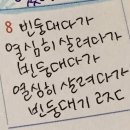 8 빈둥대다가
열심히 살려다가
빈둥대다가
열심히 살려다가
빈둥대기 라지